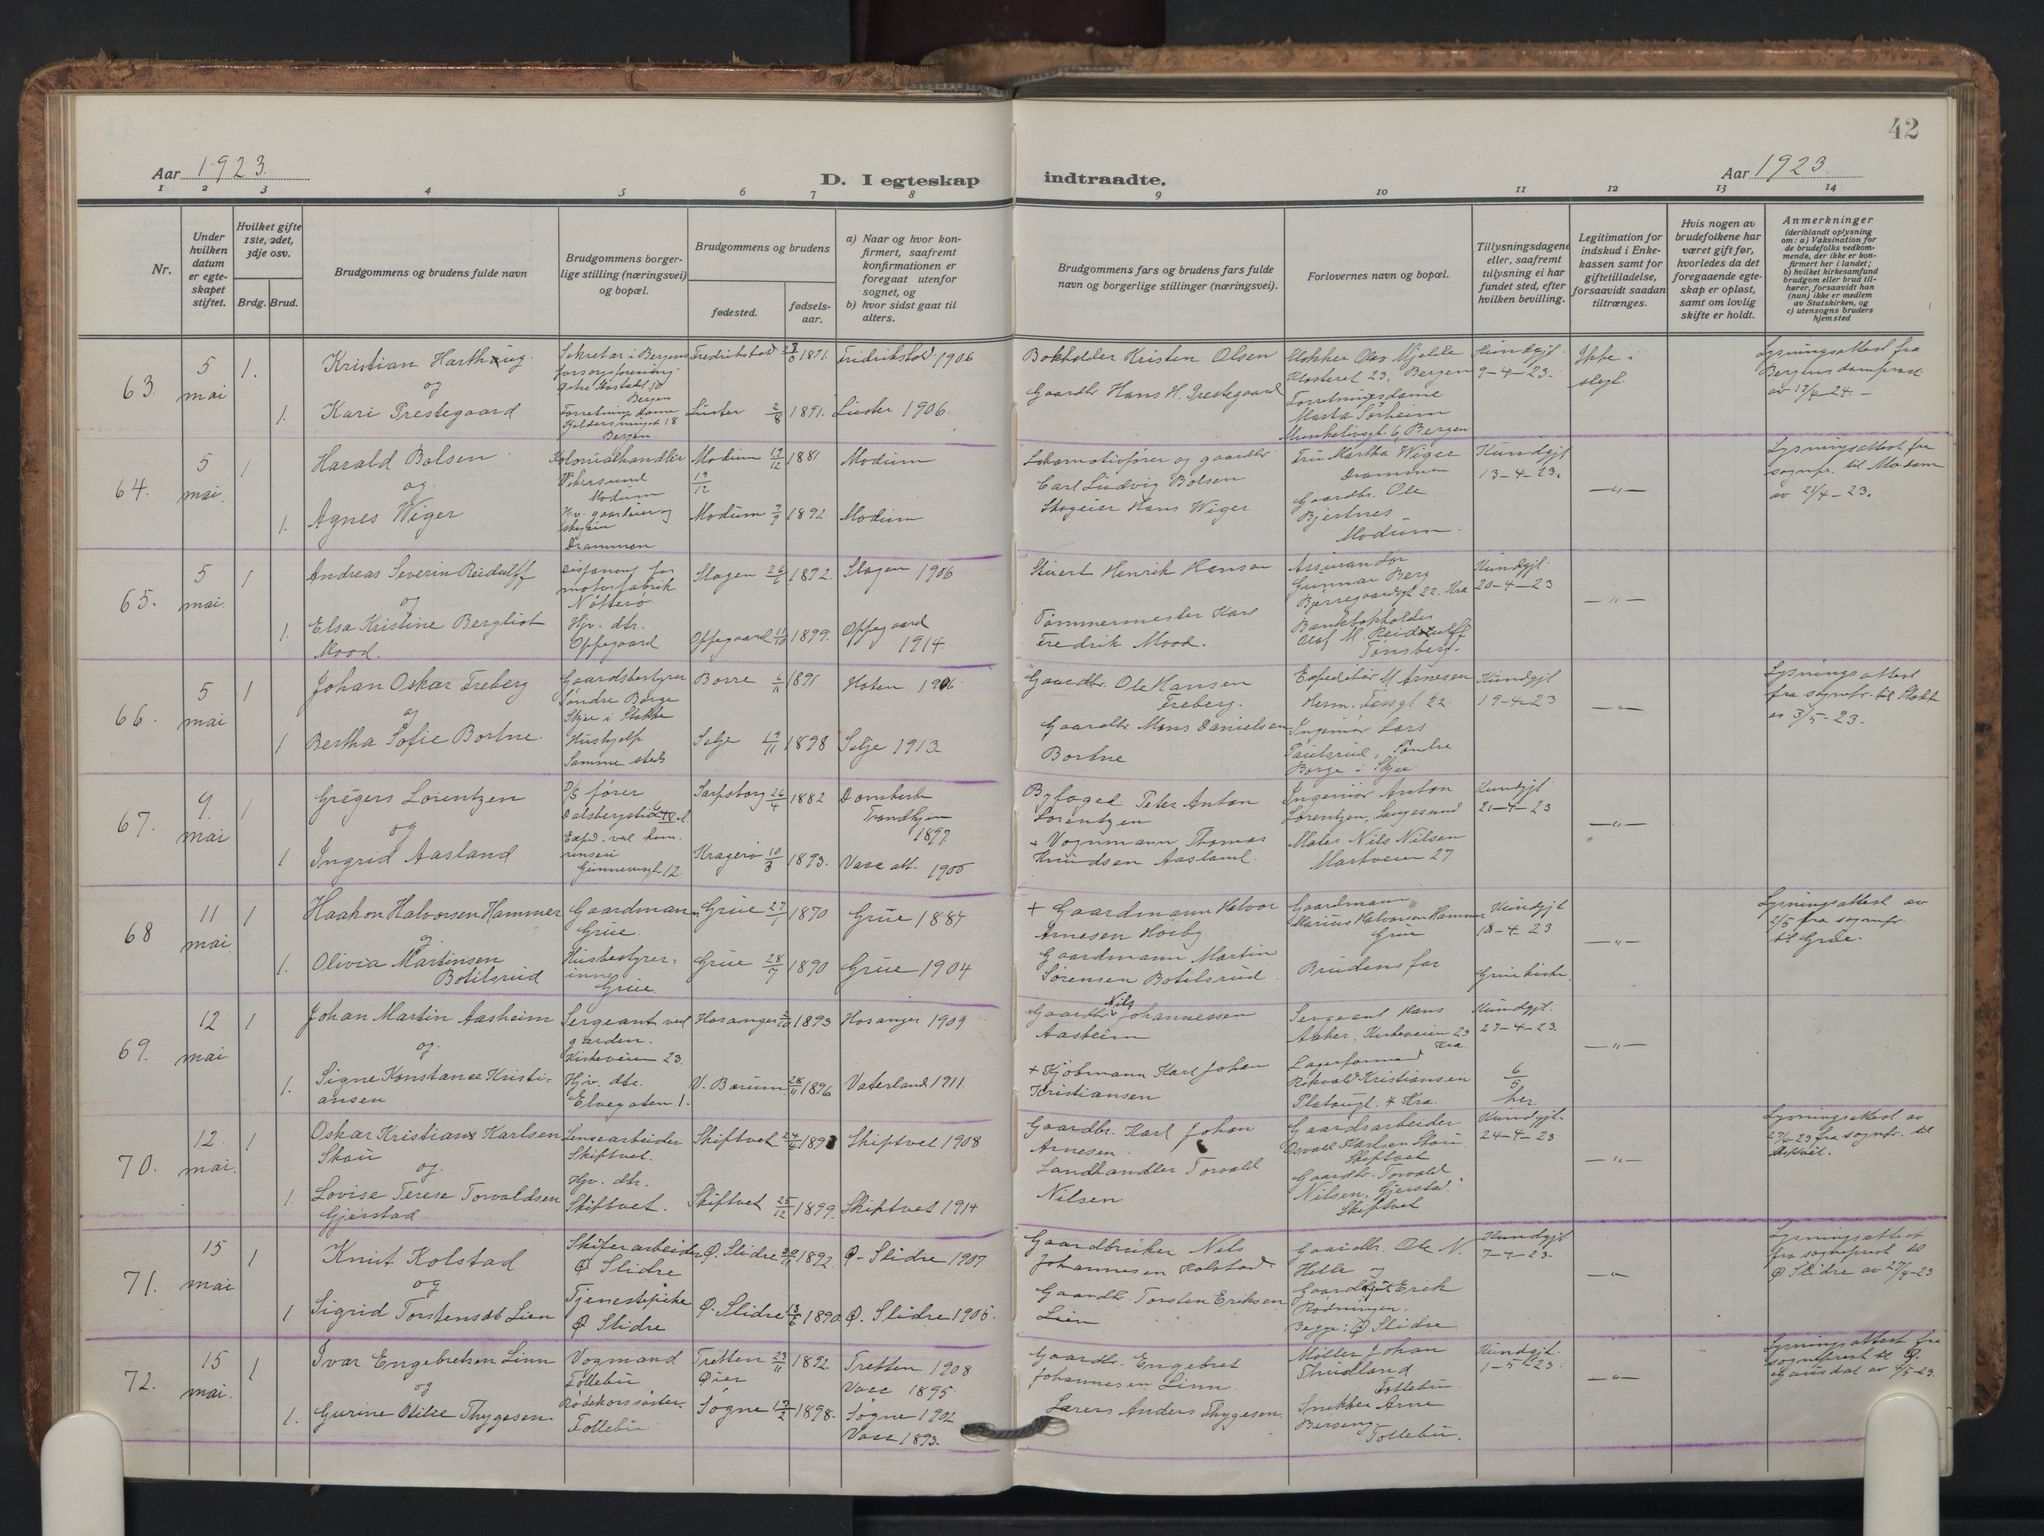 42
Aar 1923.
D. I egteskap indtraadte.
Aar 1923.
1 2 3 4 5 6 7 8 9 10 11 12 13 14
Nr.
Under hvilken datum er egte-skapet stiftet.
Hvilket gifte 1ste, 2det, 3dje osv.
Brdg. Brud.
Brudgommens og brudens fulde navn
Brudgommens borger-lige stilling (næringsvei) og bopæl.
Brudgommens og brudens
fødested.
fødsels-aar.
a) Naar og hvor kon-firmert, saafremt konfirmationen er foregaat utenfor sognet, og
b) hvor sidst gaat til alters.
Brudgommens fars og brudens fars fulde navn og borgerlige stillinger (næringsvei).
Forlovernes navn og bopæl.
Tillysningsdagene eller, saafremt tillysning ei har fundet sted, efter hvilken bevilling.
Legitimation for indskud i Enke-kassen samt for giftetilladelse, forsaavidt saadan tiltrænges.
Hvis nogen av brudefolkene har været gift før, hvorledes da det foregaaende egte-skap er opløst, samt om lovlig skifte er holdt.
Anmerkninger
(deriblandt oplysning om: a) Vaksination for de brudefolks vedkom-mende, der ikke er kon-firmert her i landet; b) hvilket kirkesamfund brudgom eller brud til-hører, forsaavidt han (hun) ikke er medlem av Statskirken, og c) utensogns bruders hjemsted
63. 5 mai 1.
Kristian Harthug
og
1. Kari Prestegaard
Sekretær i Bergens
Bergen
Forretningsdame
Bergen
Fredrikstad 1891. Fridrikstad 1906
Luster 2/8 1891. Luster 1906
Bokholder Kristen Olsen
Gaardbr. Hans H. Prestegaard
Klosteret 23, Bergen
Forretningsdame
Marta Sørheim
Munkelivsgt 6, Bergen
Kundgjt.
9-4-23.
Ikke i slegt.
Lysningsattest fra
Bergens domprost
64. 5 mai. 1
Harald Bolsen
og
1. Agnes Wiger
Kolonialhandler
Vikersund
Modum
Drammen
Modum 19/12 1881 Modum
19/12
Modum 7/9 1892. Modum
Lokomotivfører og gaardbr.
Carl Ludvig Bolsen
Skogeier Hans Wiger
Fru Martha Wiger
Drammen
Gaardbr. Ole
Bjertnes
Modum.
Kundgjt
13-4-23.
—„—
Lysningsattest fra
sognepr. til Modum
av 21/4-23.
65. 5 mai. 1
Andreas Severin Reidulff
og
1. Elsa Kristine Bergliot
Mood.
Disponent for
motorfabrik
Nøtterø
Hjv. dtr.
Oppegaard
Slagen 26/6 1892. Slagen 1906
Oppegaard 11/10 1899. Oppegaard
1914.
Stuert Henrik Hansen
Tømmermester Karl
Fredrik Mood.
Assurandør
Gunnar Berg
Bjerregaardsgt 22. Kra
Bankbokholder
Olaf M. Reidulff
Tønsberg.
Kundgjt.
20-4-23
—„—
66. 5 mai 1
Johan Oskar Freberg
og
1 Bertha Sofie Bortne.
Gaardsbestyrer
Søndre Borge
Skjee i Stokke
Hushjelp
Samme sted
Borre 6/11 1891 Horten 1906
Selje 19/11 1898 Selje 1913
Gaardbr. Ole Hansen
Freberg.
Gaardbr Mons Danielsen
Bortne
Expeditør M Arnesen
Herm. Fossgt 22.
Ingeniør Lars
Paulsrud, Søndre
Borge i Skjee.
Kundgjt
19-4-23
—„—
Lysningsattest
fra sognepr. til Stokke
av 3/5-23.
67. 9. mai 1
Gregers Lorentzen
og
1 Ingrid Aasland
D/S fører
Gunnerusgt 12.
Sarpsborg 26/4 1882 Domkirken
Trondhjem
1897
Kragerø 10/3 1893. Vacc att. 1900
Byfoged Peter Anton
Lorentzen
+ Vognmann Thomas
Knudsen Aasland.
Ingeniør Anton
Lorentzen, Langesund
Maler Nils Nilsen
Martveien 27.
Kundgjt
21-4-23
—„—
68 11 mai 1
Haakon Halvorsen Hammer
og
1. Olivia Martinsen
Botilsrud
Gaardmann
Grue.
Husbestyrer-
inne
Grue
Grue 27/1 1870 Grue 1884
Grue 28/7 1890 Grue 1904
+ Gaardmann Halvor
Arnesen Hoiby
Gaardmann Martin
Sørensen Botilsrud
Gaardmann
Marius Halvorsen Hammer
Grue
Brudens far
Kundgjt
18-4-23
Grue kirke
—„—
Lysningsattest av
2/5 fra sognepr.
til Grue.
69. 12 mai 1
Johan Martin Aasheim
og
1. Signe Konstance Kristi-
ansen
Sergeant ved
garden.
Kirkeveien 23.
Hjv. dtr.
Elvegaten 1.
Hosanger 1893 Hosanger 1909
V. Bærum 28/11 1896 Vaterland 1911
Gaardbr Nils Johannessen
Aasheim
+ Kjøbmann Karl Johan
Kristiansen
Sergeant Hans
Aaker. Kirkeveien 23
Kra.
Lagerformand
Rikvald Kristiansen
Platougt. 4 Kra.
Kundgjt.
27-4-23.
6/5
her.
—„—
70. 12 mai. 1
Oskar Kristian Karlsen
Skau
og
1. Lovise Terese Torvaldsen
Gjerstad
Lensearbeider
Skiptvet.
Hjv. dtr.
Skiptvet.
Skiptvet 24/6 1893 Skiptvet 1908
Skiptvet 25/12 1899. Skiptvet 1914
Gaardbr. Karl Johan
Arnesen.
Landhandler Torvald
Nilsen
Gaardsarbeider
Osvald Karlsen Skau
Skiptvet
Gaardbr. Torvald
Nilsen, Gjerstad.
Skiptvet
Kundgjt.
24-4-23
—„—
Lysningsattest av
fra sognepr. til
Skiptvet.
71. 15 mai 1
Knut Kolstad
og
1 Sigrid Torstensdt Lien
Skiferarbeider
Ø Slidre
Tjenestepike
Ø Slidre
Ø. Slidre 1892. Ø- Slidre 1907
Ø. Slidre 13/6 1890 Ø. Slidre 1905.
Gaardbruker Nils
Johannesen Kolstad
Gaardbr. Torsten Eriksen
Lien
Gaardbr. Ole N.
Helle og
Gaardbr. Erik
Rødningen.
Begge: Ø Slidre
Kundgjt
7-4-23.
—„—
Lysningsattest
fra sogneprest til
Ø Slidre av 27/4-23
72. 15 mai. 1
Ivar Engebretsen Linn
og
1. Gurine Otilie Thygesen
Vognmand
Follebu
Rødekorssøster
Follebu
Tretten 23/11 1892. Tretten 1908
Øier Vacc 1895.
Søgne 17/2 1898. Søgne 1902
Vacc 1893.
Gaardbr. Engebret
Johannesen Linn.
Lærer Anders Thygesen
Møller Johan
Thudland
Follebu.
Snekker Arne
Berseng,
Follebu.
Kundgjt.
1-5-23.
—„—
Lysningsattest fra
sogneprest til Ø.
Gausdal av 4/5-23.